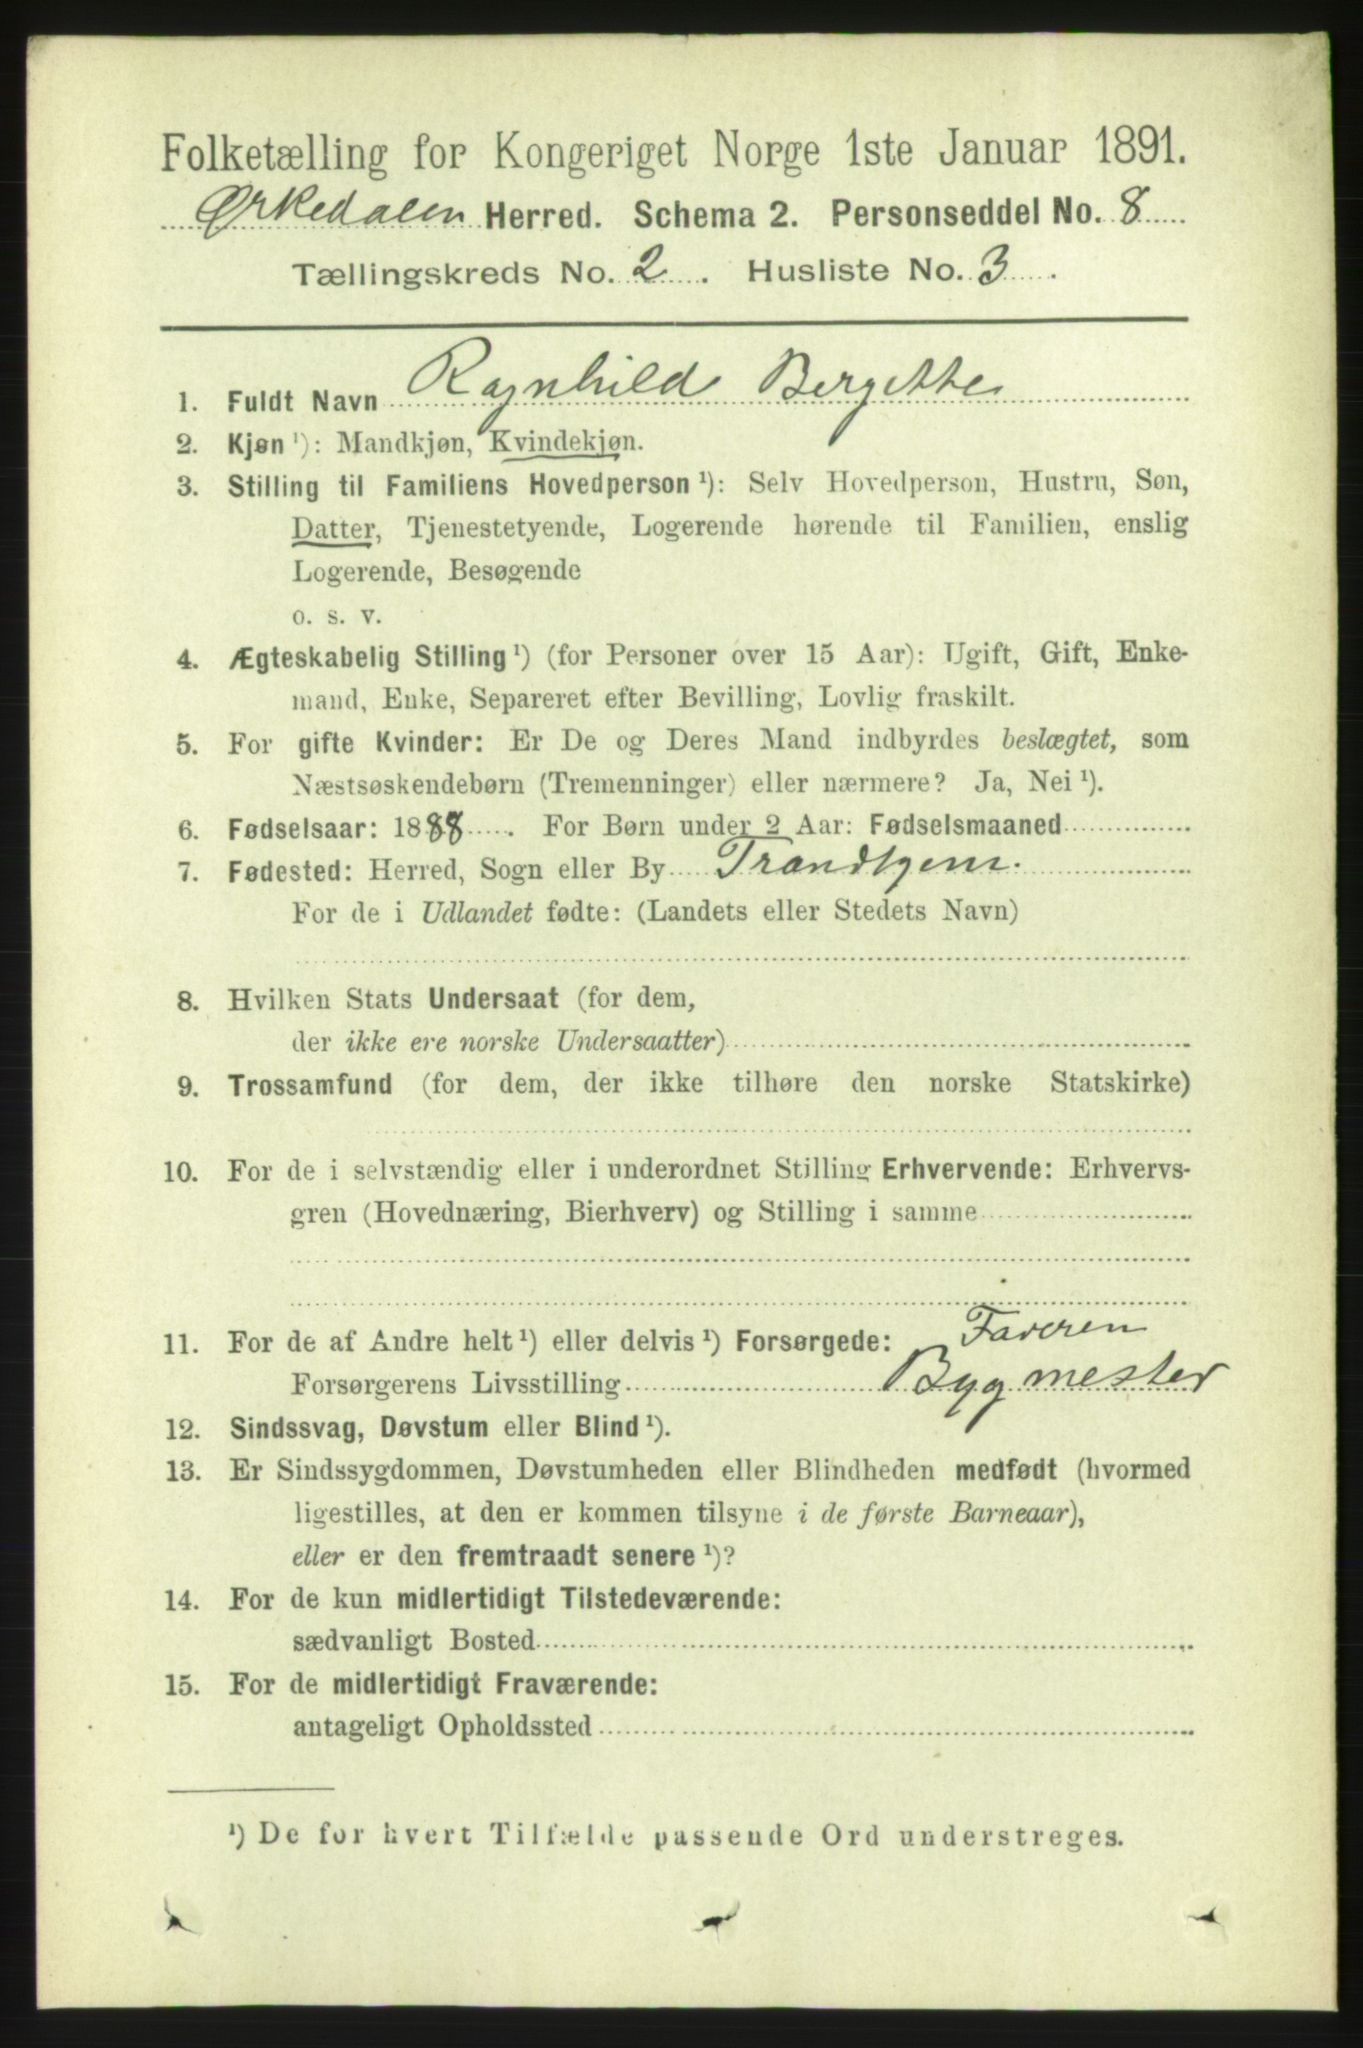 Folketælling for Kongeriget Norge 1ste Januar 1891.
Ørkedalen Herred. Schema 2. Personseddel No. 8
Tællingskreds No. 2. Husliste No. 3.
1. Fuldt Navn Ragnhild Bergitte
2. Kjøn ¹): Mandkjøn, Kvindekjøn.
3. Stilling til Familiens Hovedperson ¹): Selv Hovedperson, Hustru, Søn,
Datter, Tjenestetyende, Logerende hørende til Familien, enslig
Logerende, Besøgende
o. s. v.
4. Ægteskabelig Stilling ¹) (for Personer over 15 Aar): Ugift, Gift, Enke-
mand, Enke, Separeret efter Bevilling, Lovlig fraskilt.
5. For gifte Kvinder: Er De og Deres Mand indbyrdes beslægtet, som
Næstsøskendebørn (Tremenninger) eller nærmere? Ja, Nei ¹).
6. Fødselsaar: 1888. For Børn under 2 Aar: Fødselsmaaned
7. Fødested: Herred, Sogn eller By Trondhjem.
For de i Udlandet fødte: (Landets eller Stedets Navn)
8. Hvilken Stats Undersaat (for dem,
der ikke ere norske Undersaatter)
9. Trossamfund (for dem, der ikke tilhøre den norske Statskirke)
10. For de i selvstændig eller i underordnet Stilling Erhvervende: Erhvervs-
gren (Hovednæring, Bierhverv) og Stilling i samme
11. For de af Andre helt ¹) eller delvis ¹) Forsørgede: Faderen
Forsørgerens Livsstilling Bygmester
12. Sindssvag, Døvstum eller Blind ¹).
13. Er Sindssygdommen, Døvstumheden eller Blindheden medfødt (hvormed
ligestilles, at den er kommen tilsyne i de første Barneaar),
eller er den fremtraadt senere ¹)?
14. For de kun midlertidigt Tilstedeværende:
sædvanligt Bosted
15. For de midlertidigt Fraværende:
antageligt Opholdssted
¹) De for hvert Tilfælde passende Ord understreges.